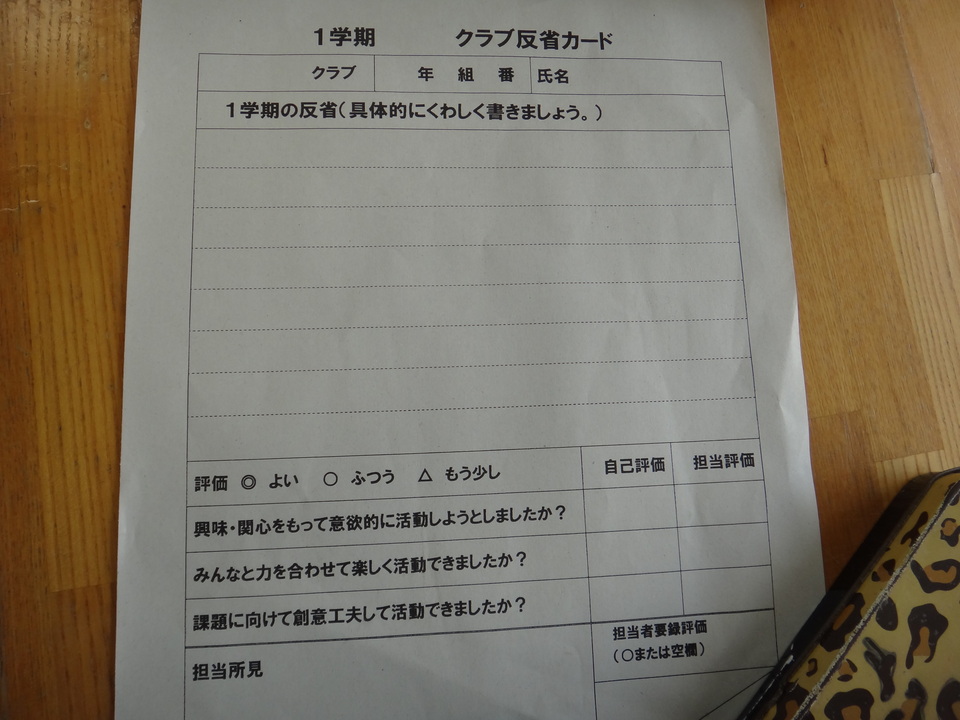 1学期 クラブ反省カード
クラブ 年 組 番 氏名
1学期の反省(具体的にくわしく書きましょう。)
評価 ◎ よい ○ ふつう △ もう少し 自己評価 担当評価
興味・関心をもって意欲的に活動しようとしましたか?
みんなと力を合わせて楽しく活動できましたか?
課題に向けて創意工夫して活動できましたか?
担当所見
担当者要録評価
(○または空欄)